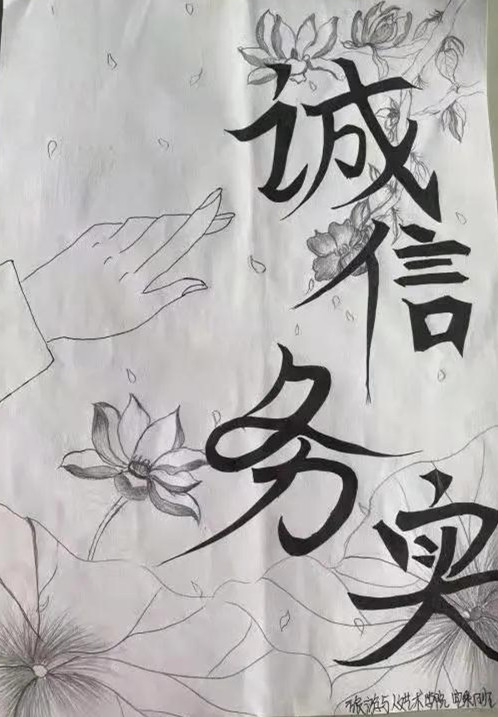 诚信
务实
旅游与人文艺术学院